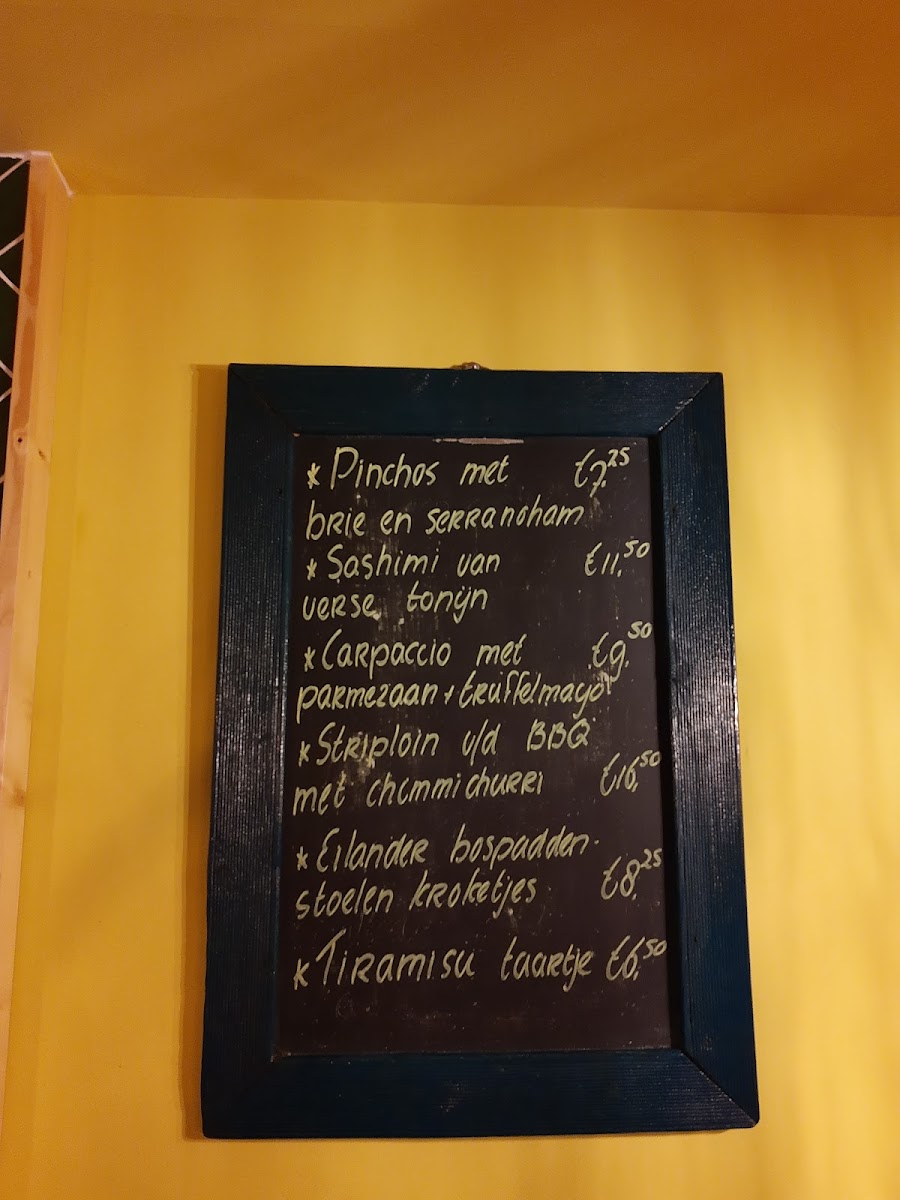 * Pinchos met €7.25
brie en serranoham
* Sashimi van €11.50
verse tonijn
* Carpaccio met €9.50
parmezaan + truffelmayo
* Striploin v/d BBQ
met chimmichurri €16.50
* Eilander bospadden-
stoelen kroketjes €8.25
* Tiramisu taartje €6.50